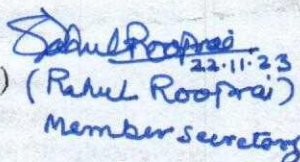 Rahul Rooprai
22.11.23
) (Rahul Rooprai)
Member Secretary